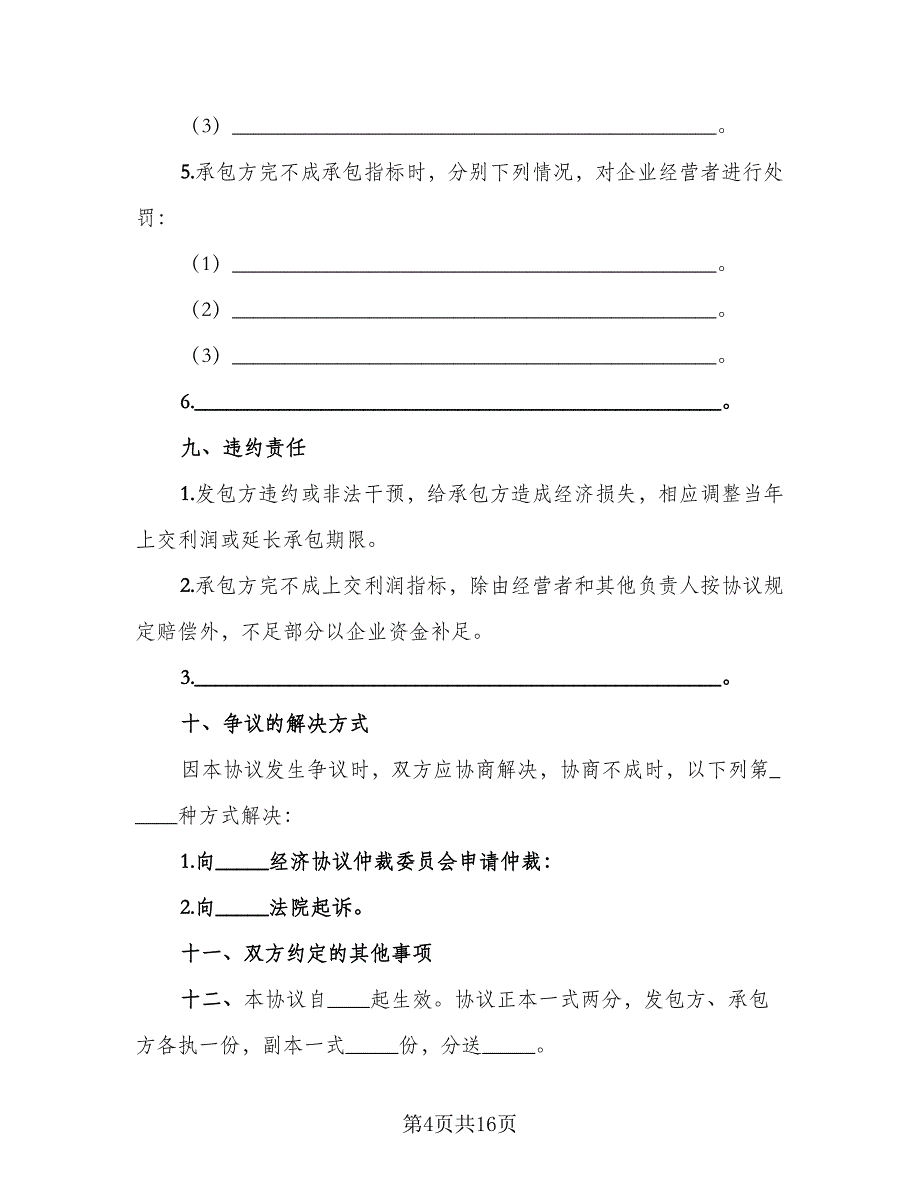 （3）______________________________________________。
5.承包方完不成承包指标时，分别下列情况，对企业经营者进行处
罚：
（1）______________________________________________。
（2）______________________________________________。
（3）______________________________________________。
6.__________________________________________________。
九、违约责任
1.发包方违约或非法干预，给承包方造成经济损失，相应调整当年
上交利润或延长承包期限。
2.承包方完不成上交利润指标，除由经营者和其他负责人按协议规
定赔偿外，不足部分以企业资金补足。
3.__________________________________________________。
十、争议的解决方式
因本协议发生争议时，双方应协商解决，协商不成时，以下列第_
____种方式解决：
1.向_____经济协议仲裁委员会申请仲裁：
2.向_____法院起诉。
十一、双方约定的其他事项
十二、本协议自____起生效。协议正本一式两分，发包方、承包
方各执一份，副本一式_____份，分送_____。
第4页共16页